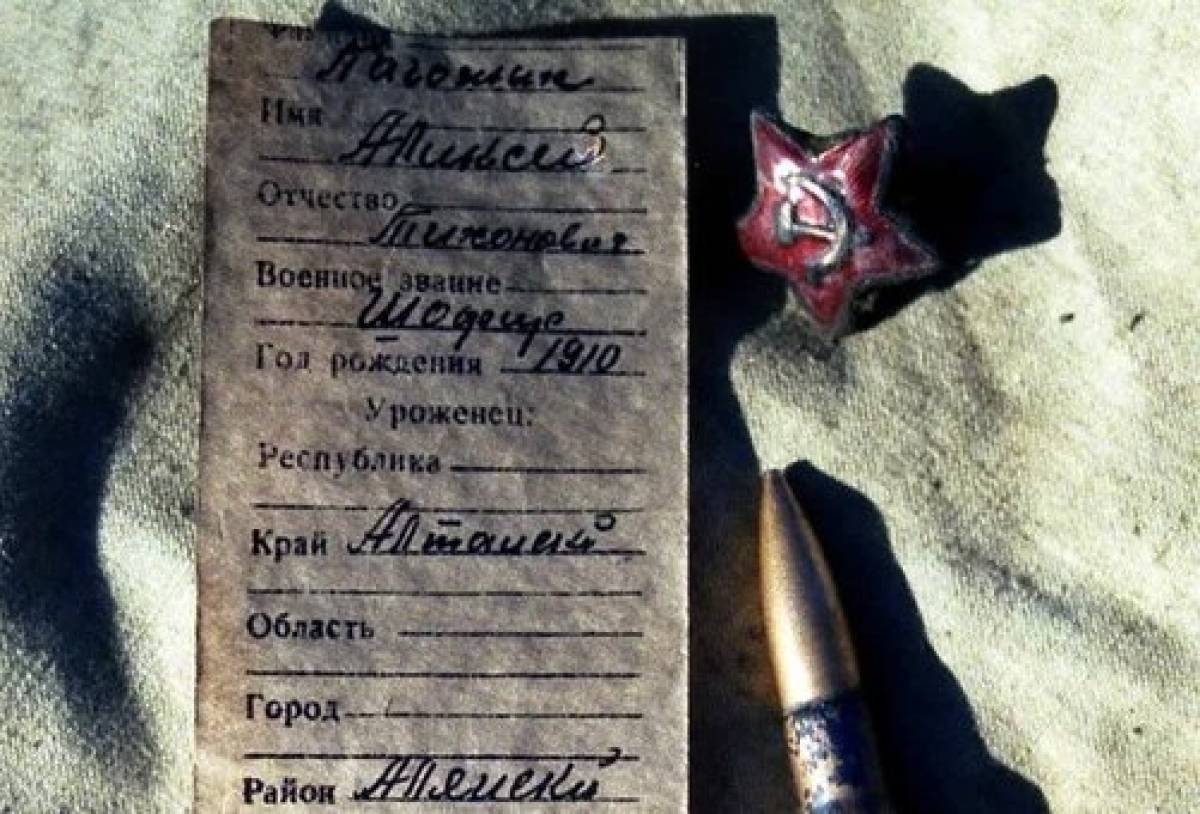 Фамилия
Имя
Аликсей
Отчество
Тихонович
Военное звание
Год рождения 1910
Уроженец:
Республика
Край Алтайскй
Область
Город
Район